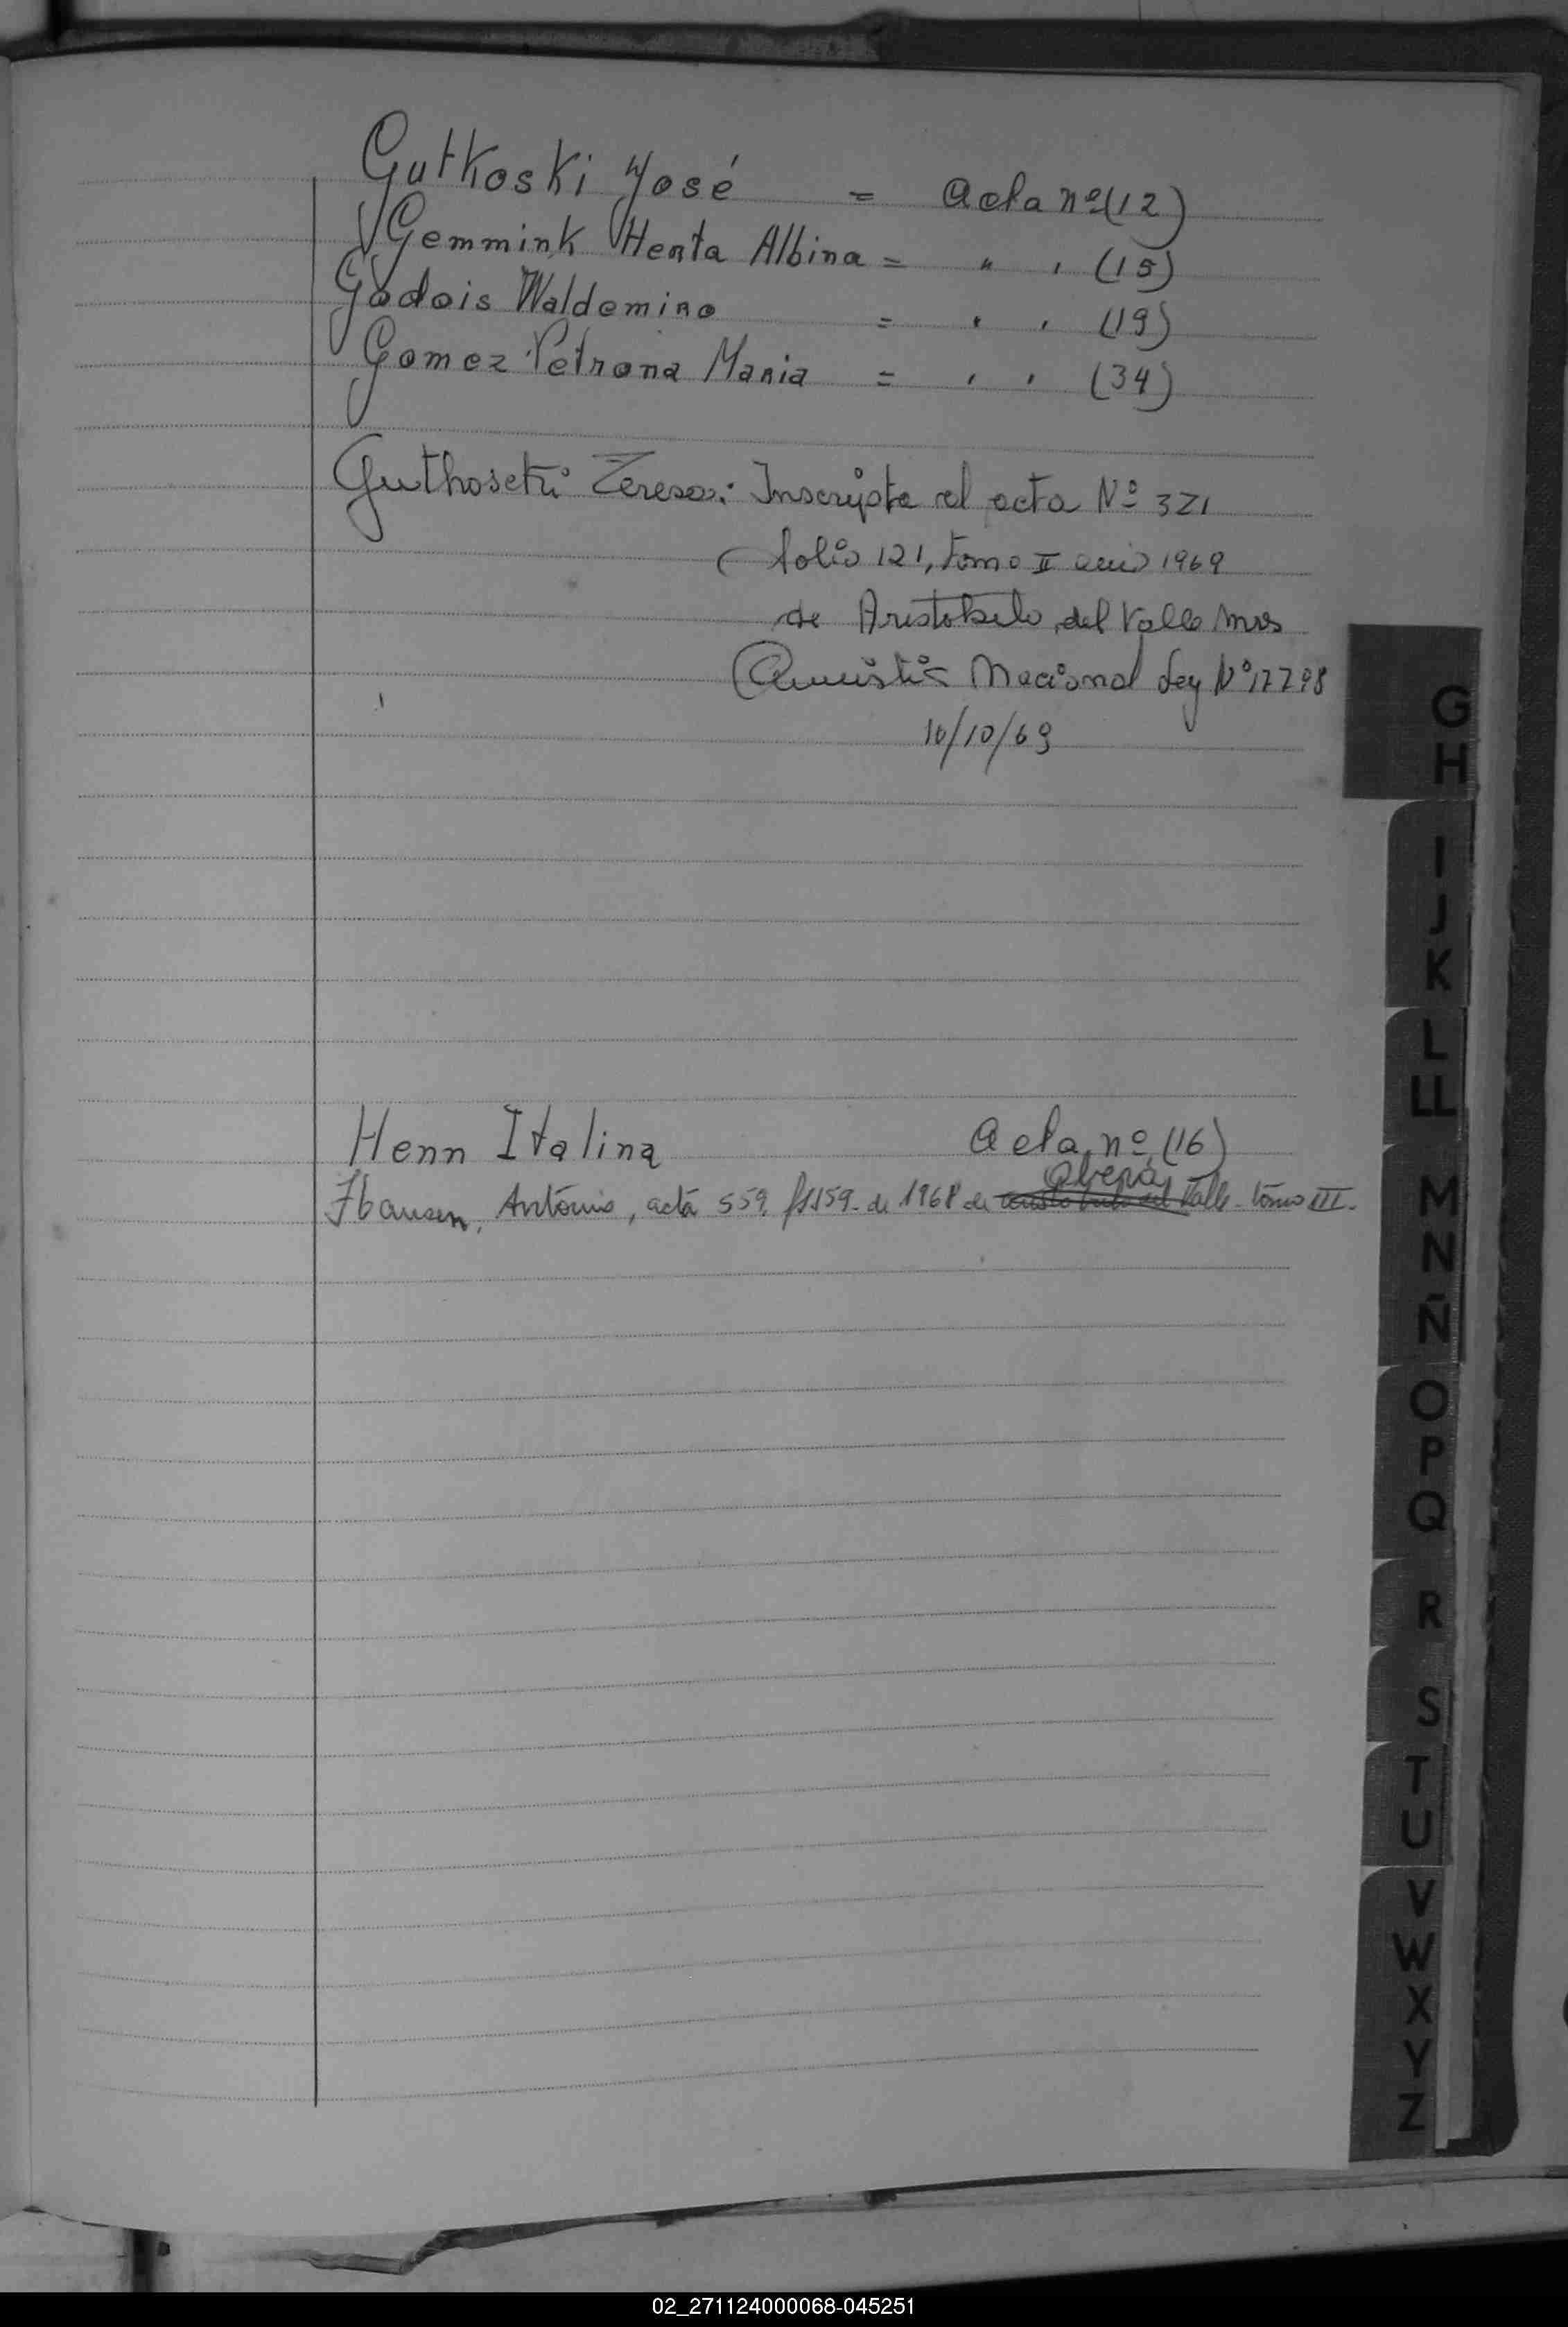 Gutkoski José = Acta nº (12)
Gemmink Herta Albina = " " (15)
Godois Waldemiro = " " (19)
Gomez Petrona Maria = " " (34)
Teresa: Inscripta al acta Nº 321
folio 121, tomo II año 1969
de Aristobulo del Valle Mns
(Amnistia Nacional Ley Nº
10/10/69
Henn Italina Acta nº (16)
Oberá
Antonio, acta 559, fs 159 de 1968 de Valle - tomo III.
G
H
I
J
K
L
LL
M
N
Ñ
O
P
Q
R
S
T
U
V
W
X
Y
Z
02_271124000068-045251